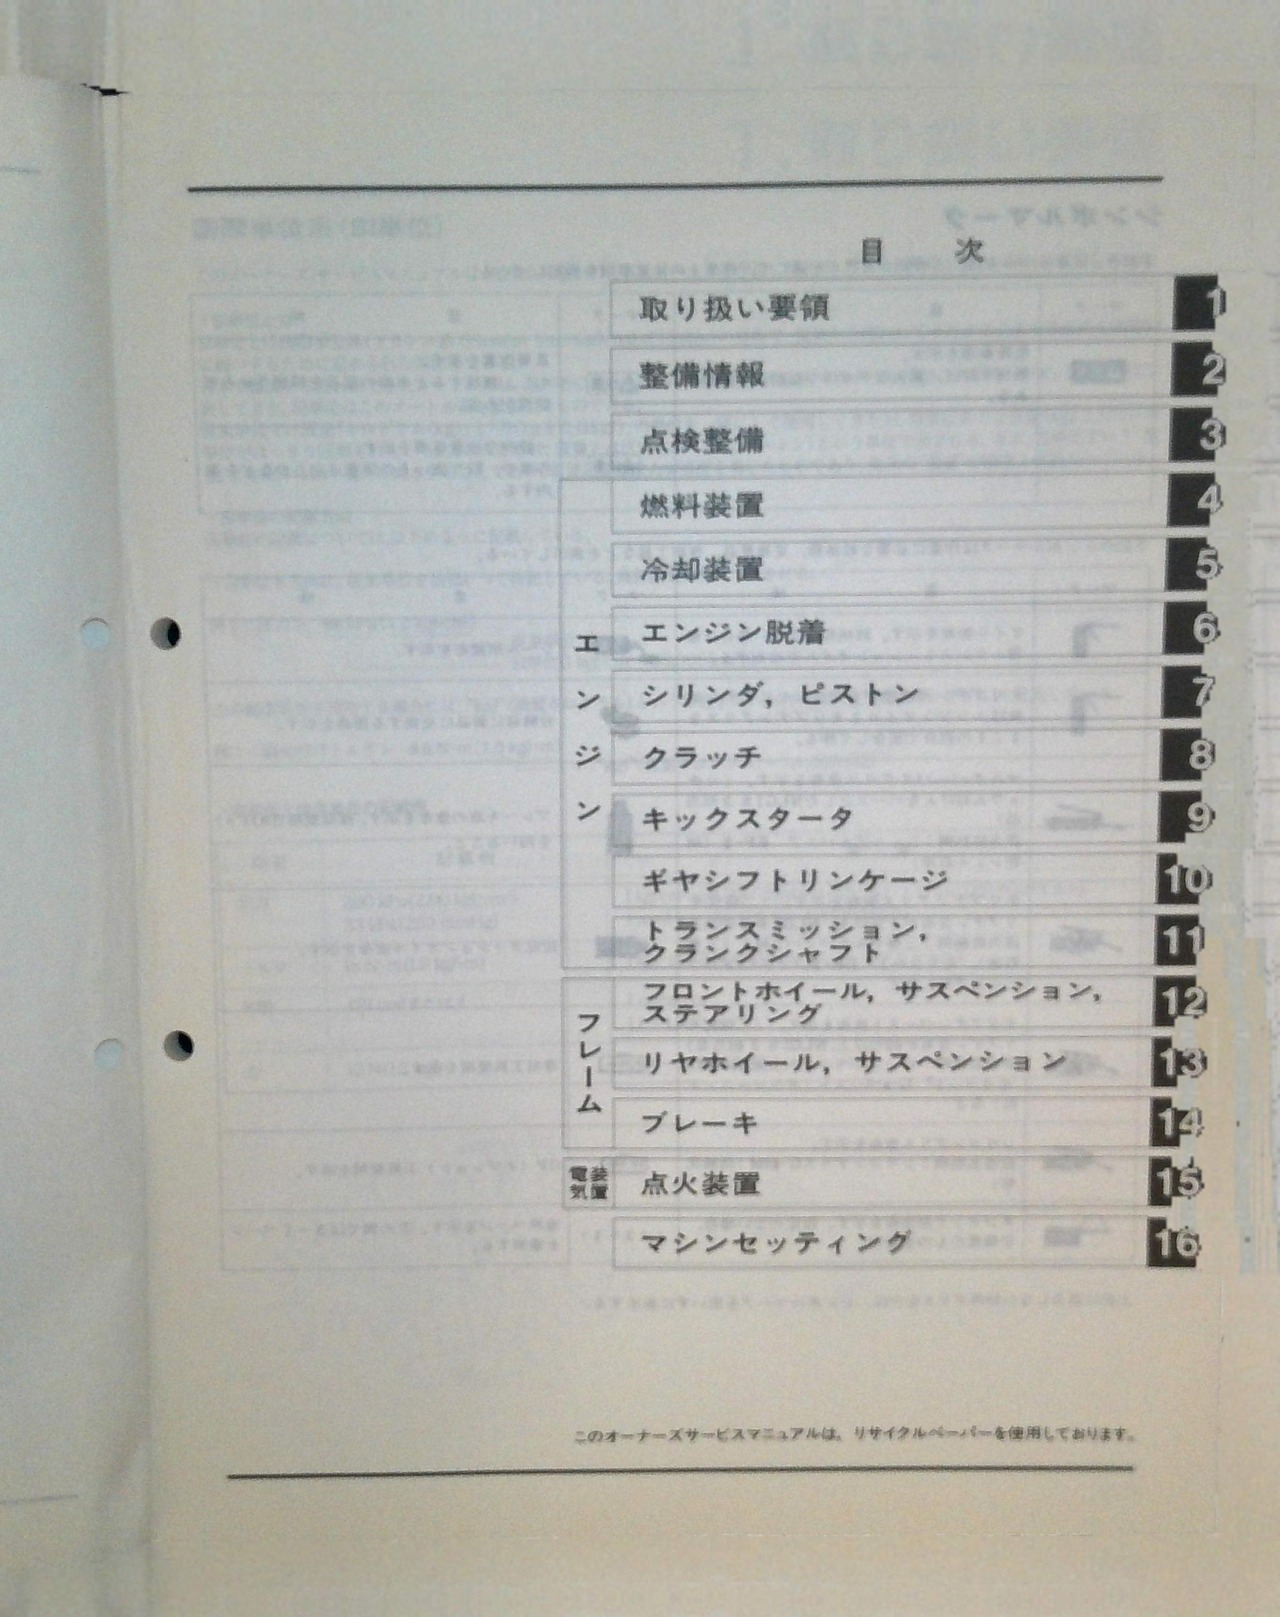 目 次
取り扱い要領 1
整備情報 2
点検整備 3
エンジン
燃料装置 4
冷却装置 5
エンジン脱着 6
シリンダ，ピストン 7
クラッチ 8
キックスタータ 9
ギヤシフトリンケージ 10
トランスミッション，
クランクシャフト 11
フレーム
フロントホイール，サスペンション，
ステアリング 12
リヤホイール，サスペンション 13
ブレーキ 14
電気装置
点火装置 15
マシンセッティング 16
このオーナーズサービスマニュアルは，リサイクルペーパーを使用しております。